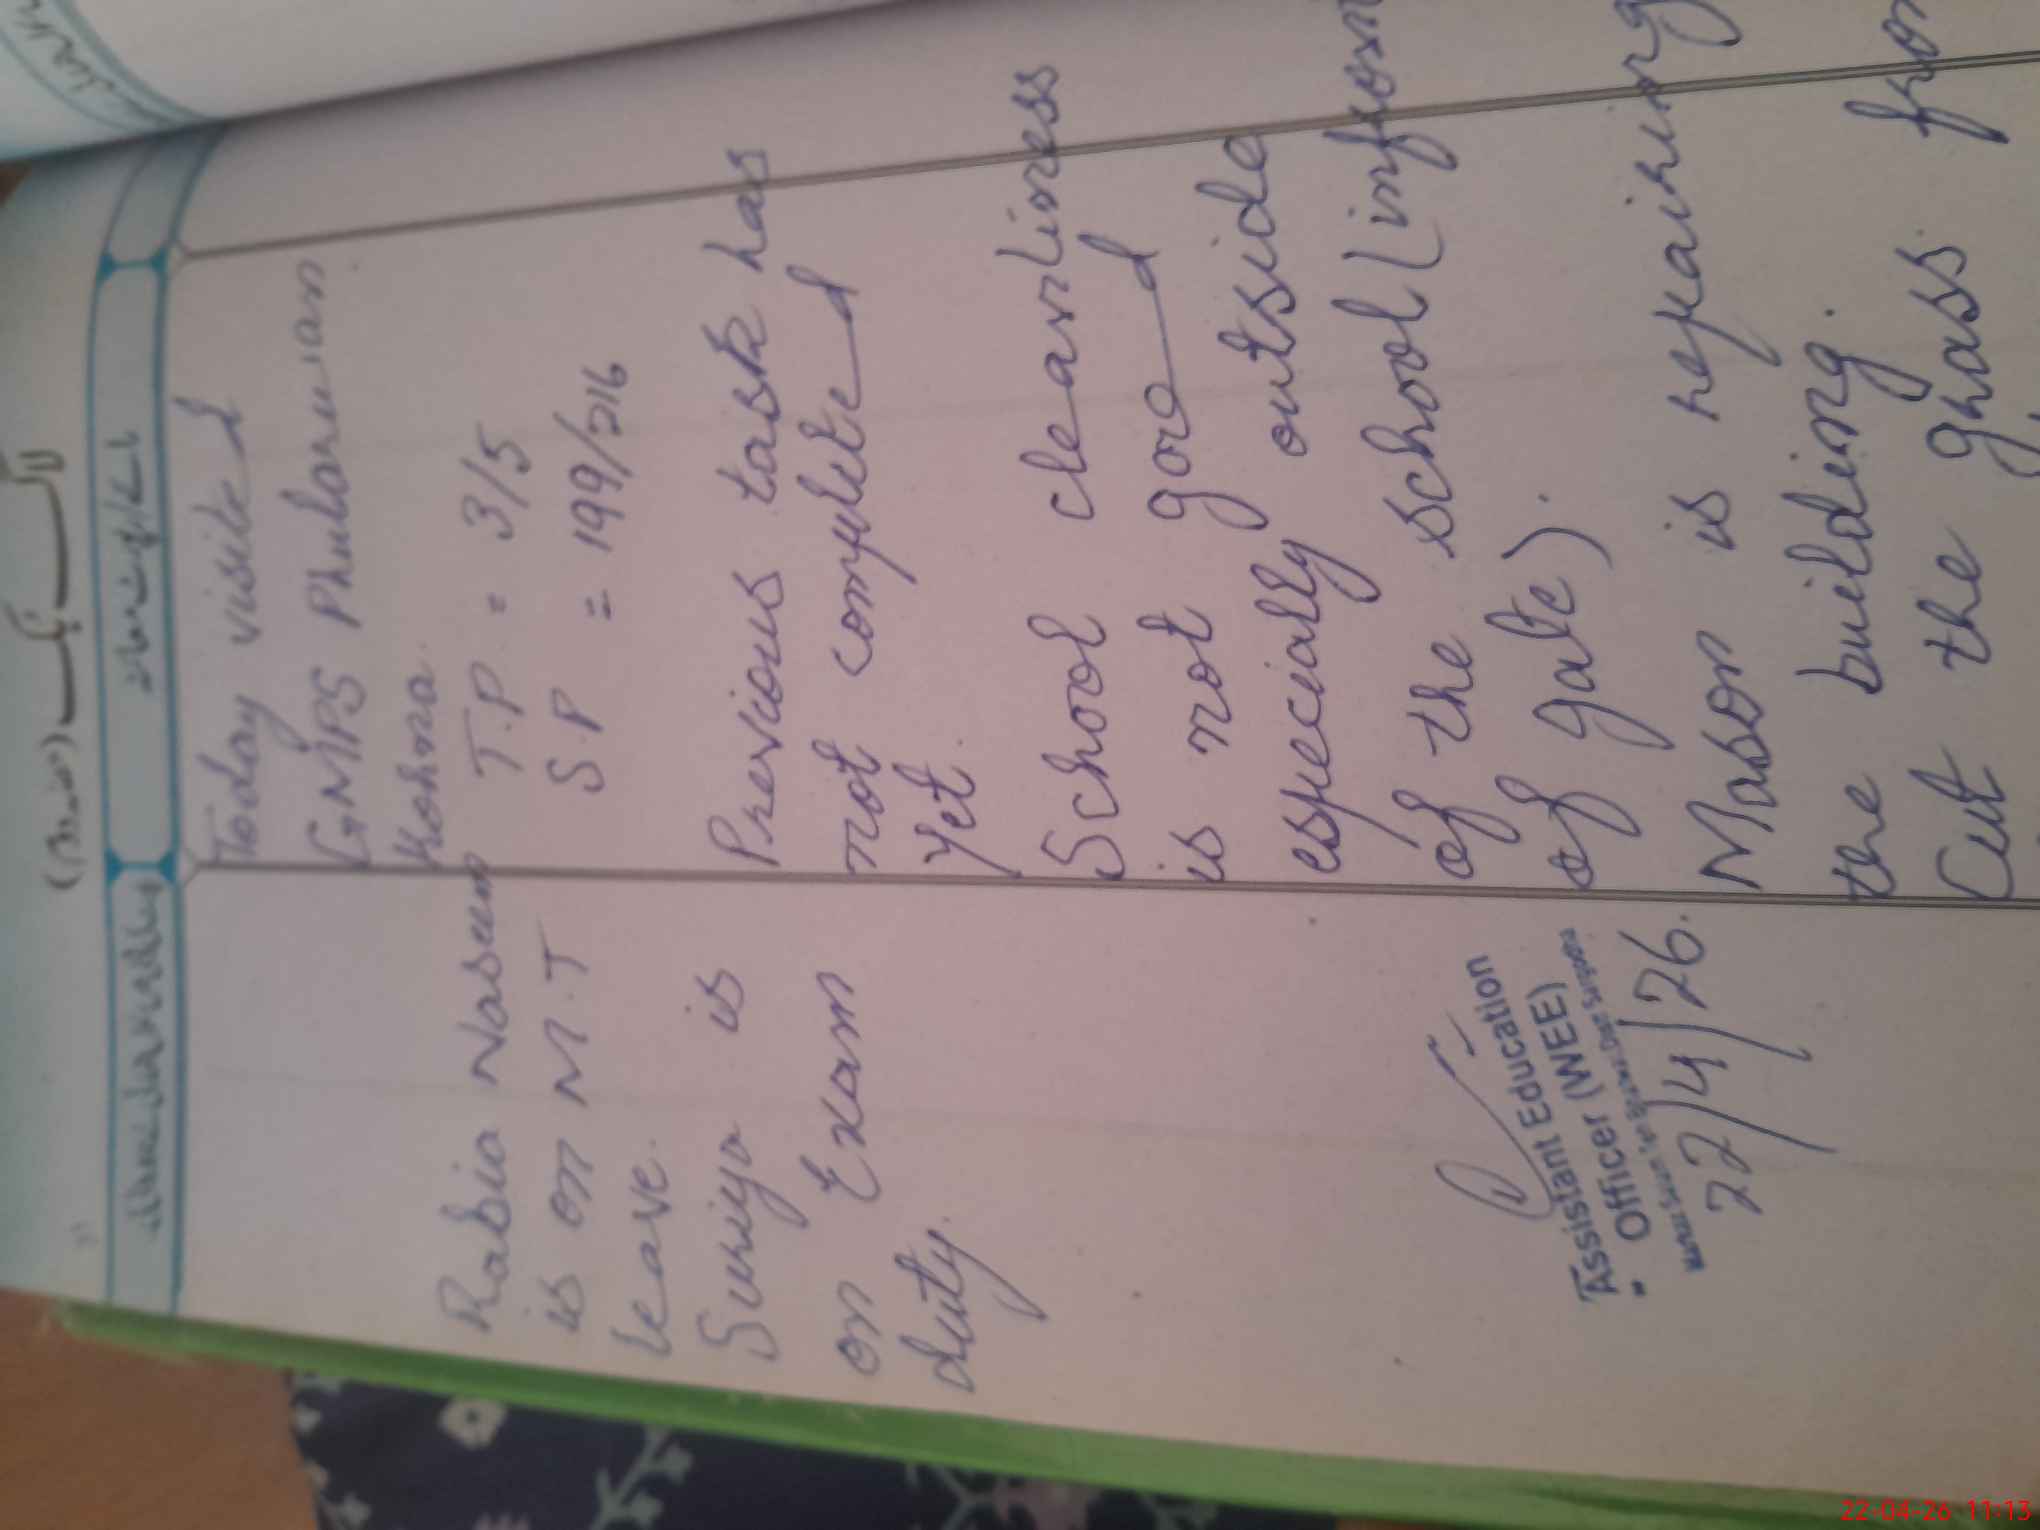 Today visited
GMPS Phularwan
Kohna.
T.P = 3/5
S.P = 199/216
Previous task has
not completed
yet.
School cleanliness
is not good
especially outside
of the school (infront
of gate).
Mason is repairing
the building.
Cut the grass from
Rabia Naseem
is on M.T
leave.
Suriya is
on Exam
duty.
Assistant Education
Officer (WEE)
22/4/26.
22-04-26 11:13